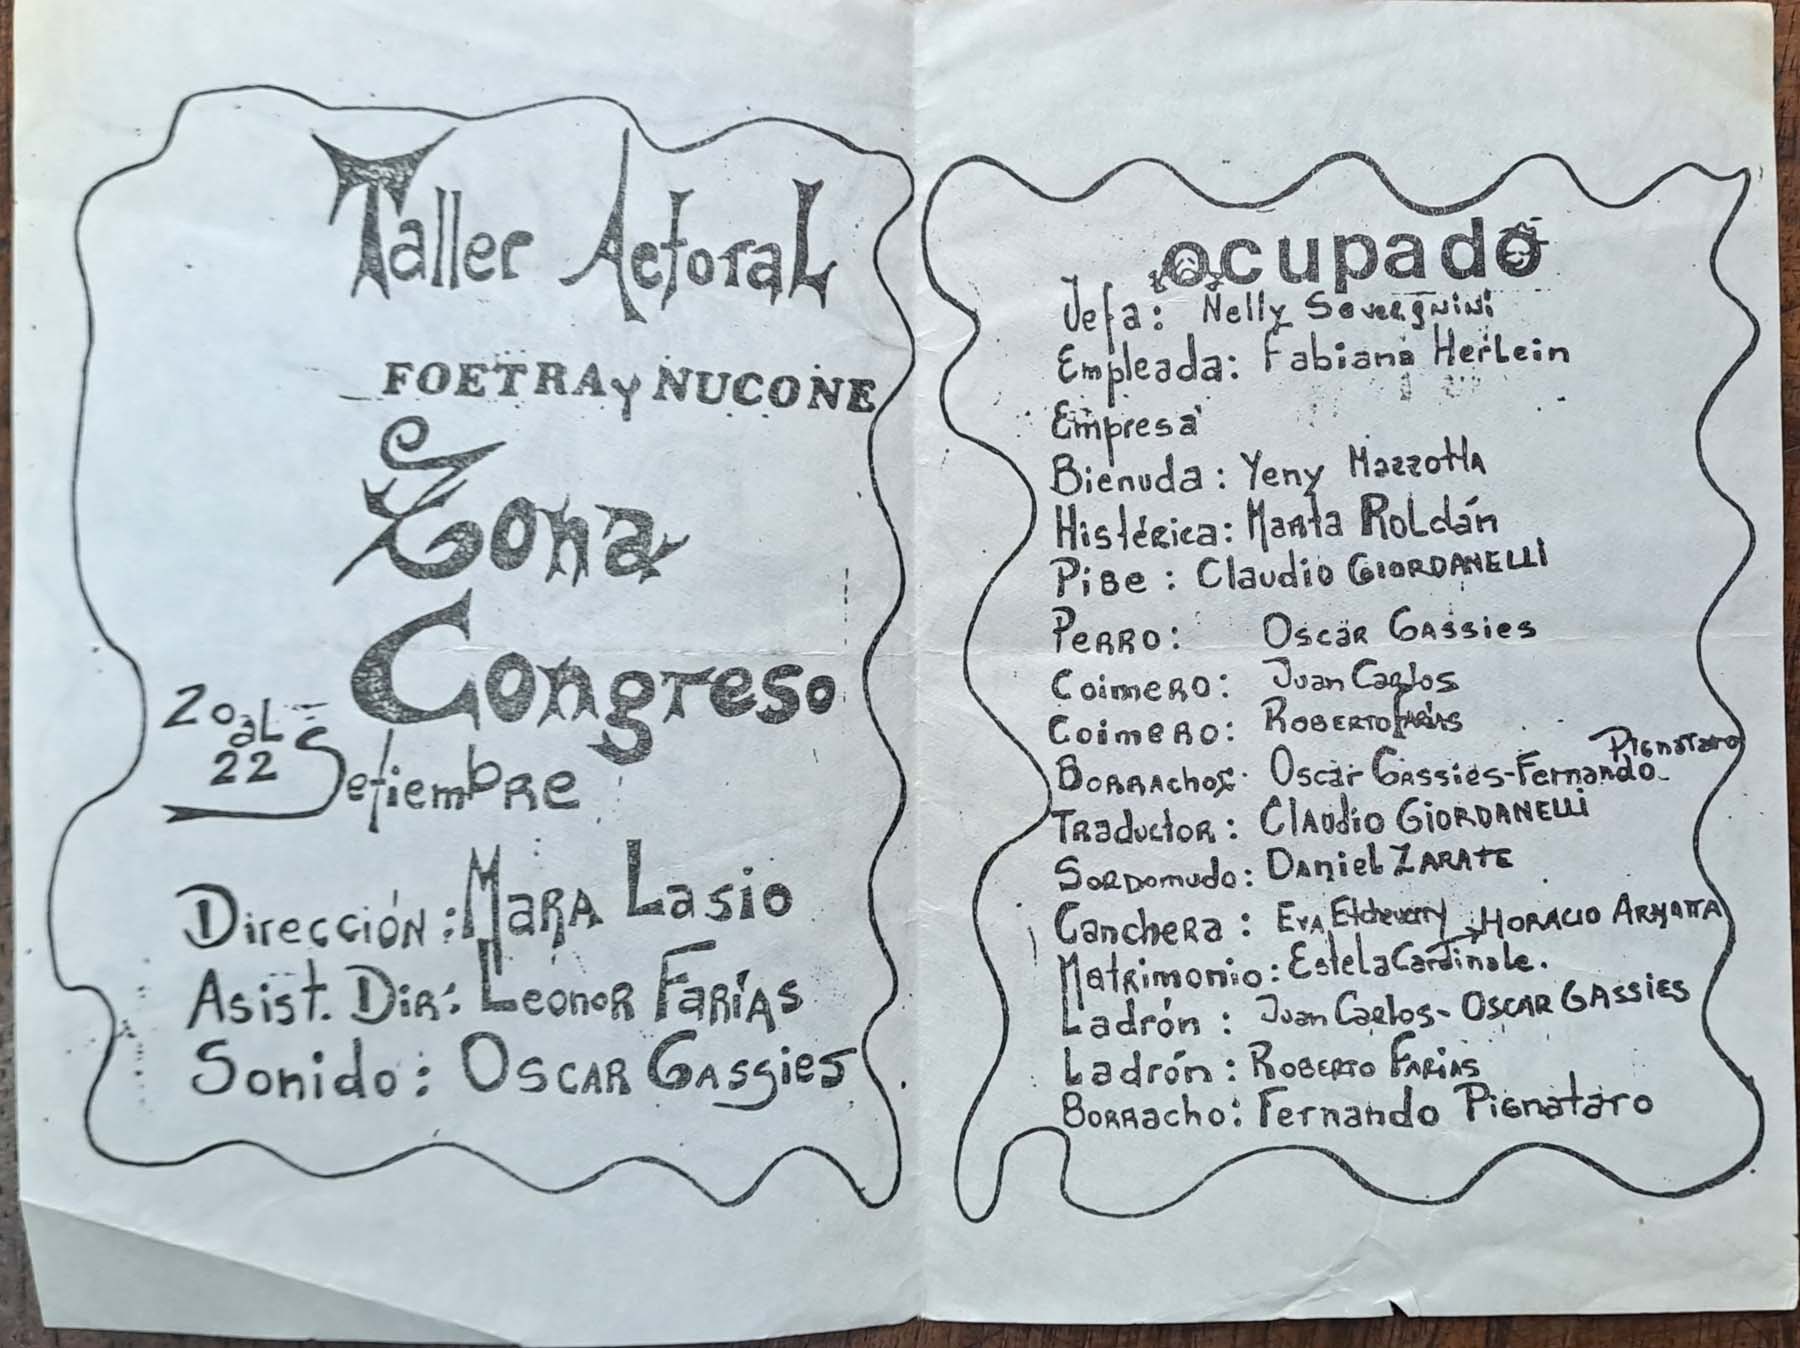 Taller Actoral
FOETRA y NUCONE
Zona
Congreso
20 al
22 Setiembre
Dirección: Mara Lasio
Asist. Dir.: Leonor Farías
Sonido: Oscar Gassies
ocupado
Jefa: Nelly Severgnini
Empleada: Fabiana Herlein
Empresa
Bienuda: Yeny Mazzotta
Histérica: Marta Roldán
Pibe: Claudio Giordanelli
Perro: Oscar Gassies
Coimero: Juan Carlos
Coimero: Roberto Farías
Borrachos: Oscar Gassies-Fernando Pignataro
Traductor: Claudio Giordanelli
Sordomudo: Daniel Zarate
Canchera: Eva Etcheverry
Matrimonio: Estela Cardinale. Horacio
Ladrón: Juan Carlos- Oscar Gassies
Ladrón: Roberto Farías
Borracho: Fernando Pignataro